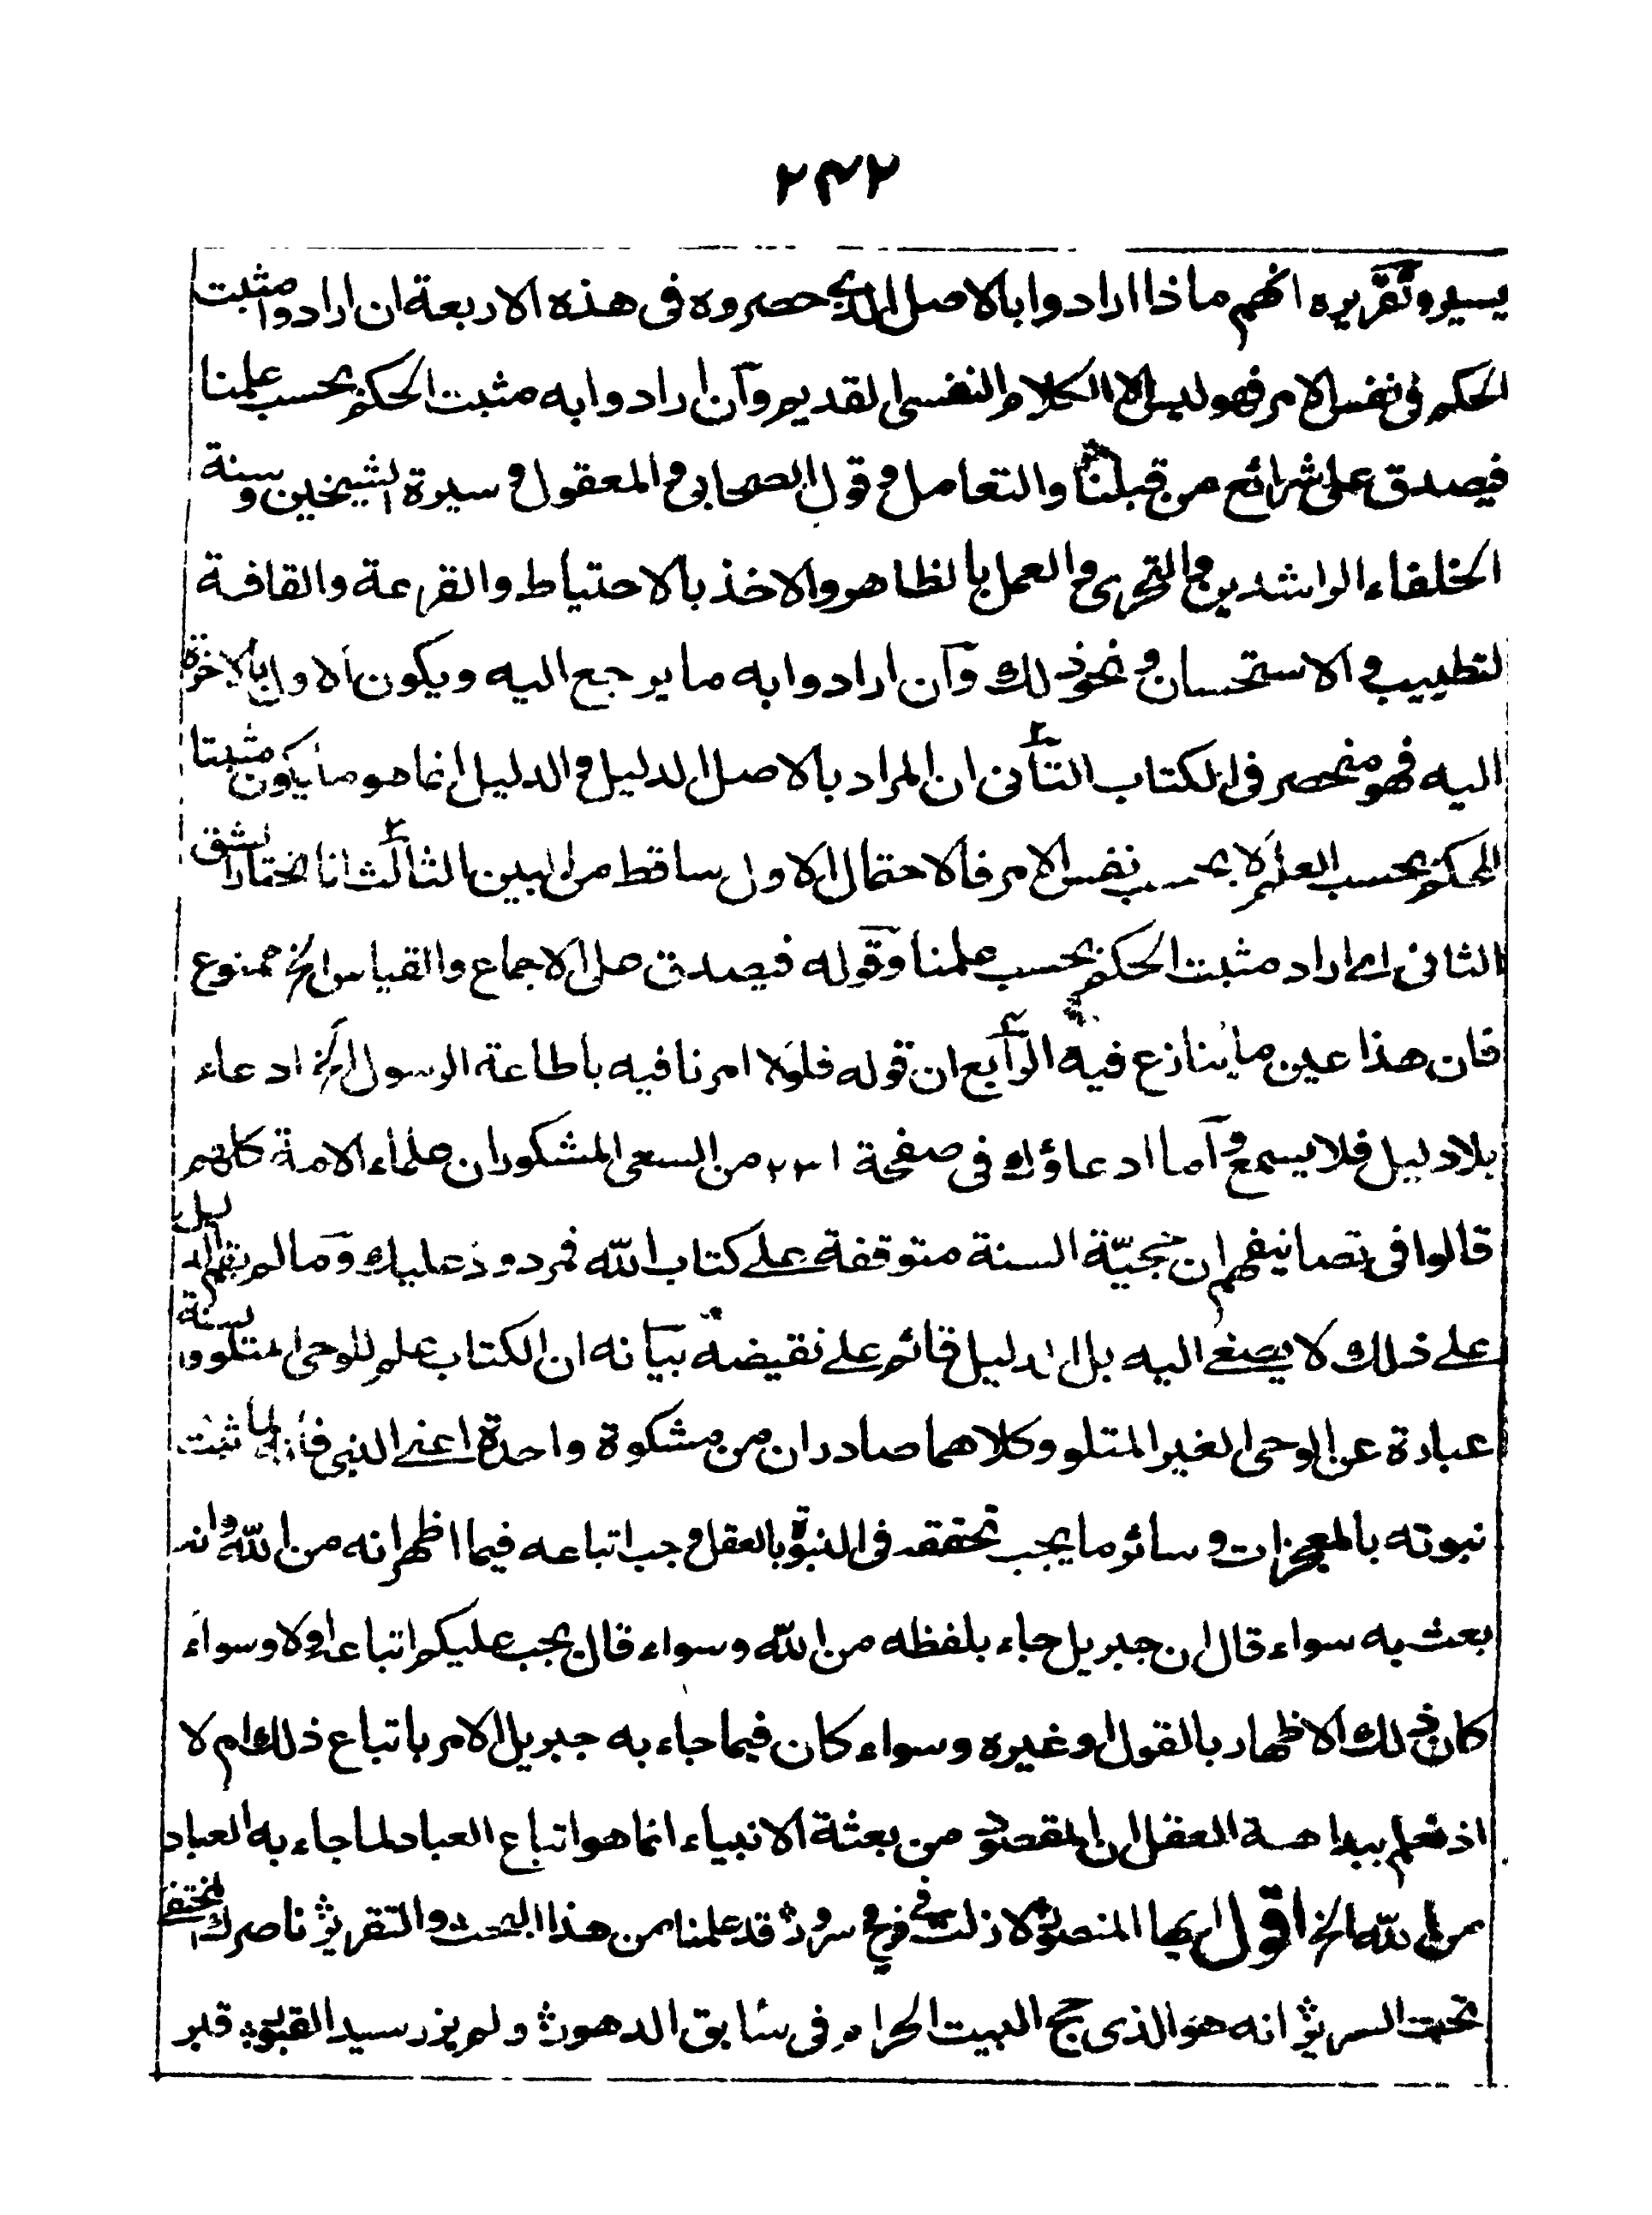 ٢٤٢
يسير وتقريره انهم ماذا ارادوا بالاصل الذي حصروه فى هذه الاربعة ان ارادوا مثبت
الحكم فى نفس الامر فهو ليس الا الكلام النفسى القديم وان ارادوا به مثبت الحكم بحسب علمنا
فيصدق على شرائع من قبلنا والتعامل وقول الصحابى والمعقول وسيرة الشيخين وسنة
الخلفاء الراشدين والتحرى والعمل بالظاهر والاخذ بالاحتياط والقرعة والقافة
لتطييب والاستحسان ونحو ذلك وان ارادوا به ما يرجع اليه ويكون الاول بالاخرة
اليه فهو منحصر فى الكتاب الثانى ان المراد بالاصل الدليل والدليل انما هو ما يكون مثبتا
للحكم بحسب العلم لا بحسب نفس الامر فالاحتمال الاول ساقط من البين الثالث انا نختار الشق
الثانى اى اراد مثبت الحكم بحسب علمنا وقوله فيصدق على الاجماع والقياس الخ ممنوع
فان هذا عين ما يتنازع فيه الرابع ان قوله فلولا امرنا فيه باطاعة الرسول الخ ادعاء
بلا دليل فلا يسمع واما ادعاؤك فى صفحة ٢٣١ من السعى المشكور ان علماء الامة كلهم
قالوا فى تصانيفهم ان حجيّة السنة متوقفة على كتاب الله فمردود عليك وما لم يقم الدليل
على ذلك لا يصغى اليه بل الدليل قائم على نقيضه بيانه ان الكتاب علم للوحى المتلو والسنة
عبارة عن الوحى الغير المتلو وكلاهما صادران من مشكوة واحدة اعنى النبى فانه لما ثبت
نبوته بالمعجزات وسائر ما يجب تحققه فى النبوة بالعقل وجب اتباعه فيما اظهر انه من الله وانه
بعث به سواء قال ان جبريل جاء بلفظه من الله وسواء قال يجب عليكم اتباعه اولا وسواء
كان ذلك الاظهار بالقول او غيره وسواء كان فيما جاء به جبريل الامر باتباع ذلك ام لا
اذ نعلم ببداهة العقل ان المقصود من بعثة الانبياء انما هو اتباع العباد لما جاء به العباد
من الله الخ اقول ايها المنصور لا زلت فى فرح وسرور قد علمنا من هذا البحث والتقرير ناصرك المختفى
تحت السرير انه هو الذى حج البيت الحرام فى سابق الدهور ولم يزر سيد القبور قبر